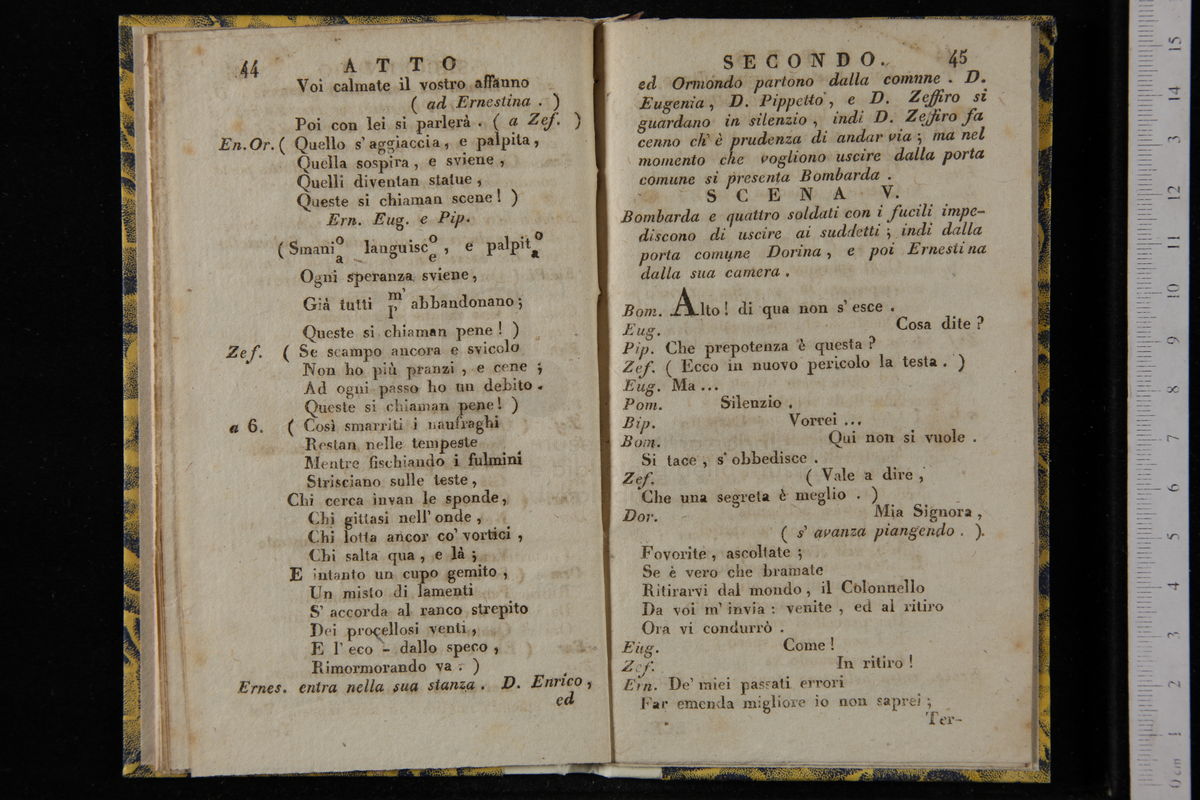 44 ATTO
Voi calmate il vostro affanno
( ad Ernestina . )
Poi con lei si parlerà . ( a Zef. )
En. Or. ( Quello s' aggiaccia , e palpita ,
Quella sospira , e sviene ,
Quelli diventan statue ,
Queste si chiaman scene ! )
Ern. Eug. e Pip.
( Smani o/a languisc o/e , e palpit o/a
Ogni speranza sviene ,
Già tutti m'/p' abbandonano ;
Queste si chiaman pene ! )
Zef. ( Se scampo ancora e svicolo
Non ho più pranzi , e cene ;
Ad ogni passo ho un debito .
Queste si chiaman pene ! )
a 6. ( Così smarriti i naufraghi
Restan nelle tempeste
Mentre fischiando i fulmini
Strisciano sulle teste ,
Chi cerca invan le sponde ,
Chi gittasi nell' onde ,
Chi lotta ancor co' vortici ,
Chi salta qua , e là ;
E intanto un cupo gemito ,
Un misto di lamenti
S' accorda al ranco strepito
Dei procellosi venti ,
E l' eco - dallo speco ,
Rimormorando va . )
Ernes. entra nella sua stanza . D. Enrico ,
ed
SECONDO. 45
ed Ormondo partono dalla comune . D.
Eugenia , D. Pippetto , e D. Zeffiro si
guardano in silenzio , indi D. Zeffiro fa
cenno ch' è prudenza di andar via ; ma nel
momento che vogliono uscire dalla porta
comune si presenta Bombarda .
SCENA V.
Bombarda e quattro soldati con i fucili impe-
discono di uscire ai suddetti ; indi dalla
porta comune Dorina , e poi Ernestina
dalla sua camera .
Bom. Alto ! di qua non s' esce .
Eug. Cosa dite ?
Pip. Che prepotenza è questa ?
Zef. ( Ecco in nuovo pericolo la testa . )
Eug. Ma ...
Pom. Silenzio .
Bip. Vorrei ...
Bom. Qui non si vuole .
Si tace , s' obbedisce .
Zef. ( Vale a dire ,
Che una segreta è meglio . )
Dor. Mia Signora ,
( s' avanza piangendo . ).
Fovorite , ascoltate ;
Se è vero che bramate
Ritirarvi dal mondo , il Colonnello
Da voi m' invia : venite , ed al ritiro
Ora vi condurrò .
Eug. Come !
Zef. In ritiro !
Ern. De' miei passati errori
Far emenda migliore io non saprei ;
Ter-
15
14
13
12
11
10
9
8
7
6
5
4
3
2
1
0 cm